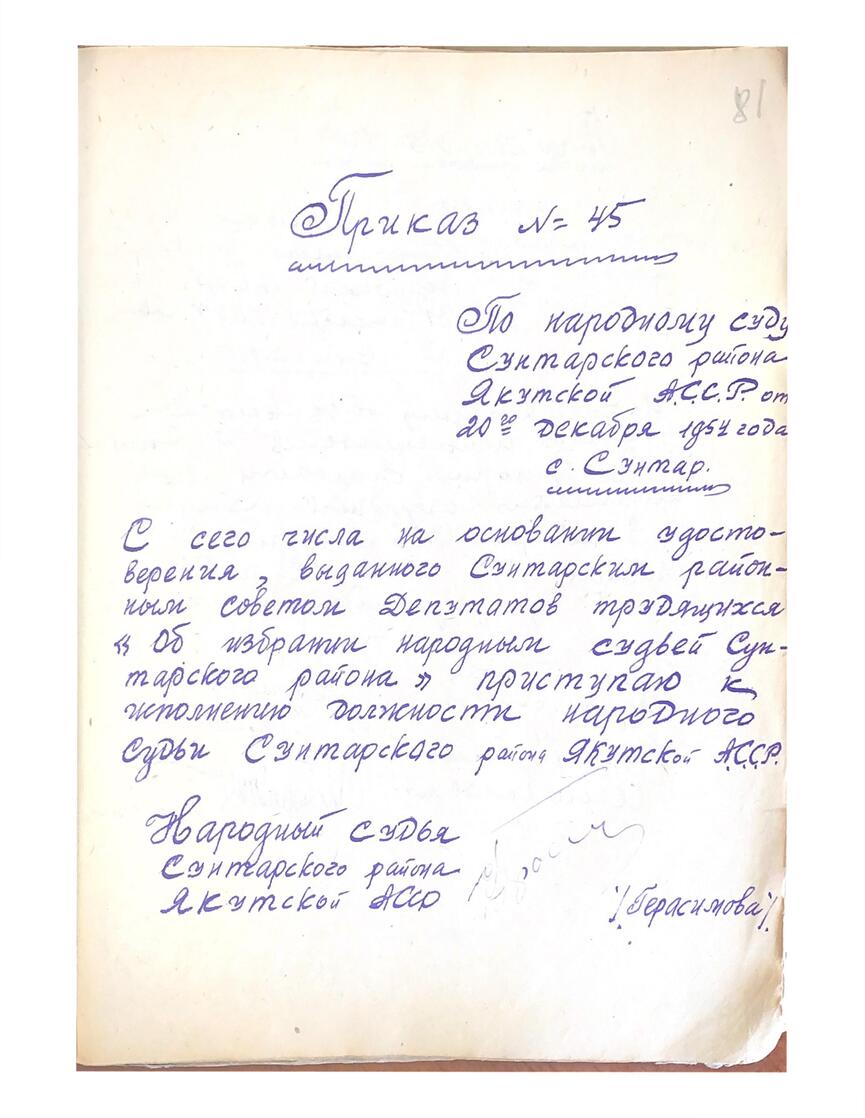 81
Приказ № 45
По народному суду
Сунтарского района
Якутской А.С.С.Р. от
20го декабря 1954 года
с. Сунтар.
С сего числа на основании удосто-
верения, выданного Сунтарским район-
ным советом Депутатов трудящихся
« Об избрании народным судьей Сун-
тарского района » приступаю к
исполнению должности народного
судьи Сунтарского района Якутской А.С.С.Р.
Народный судья
Сунтарского района
Якутской АССР
/Герасимова/